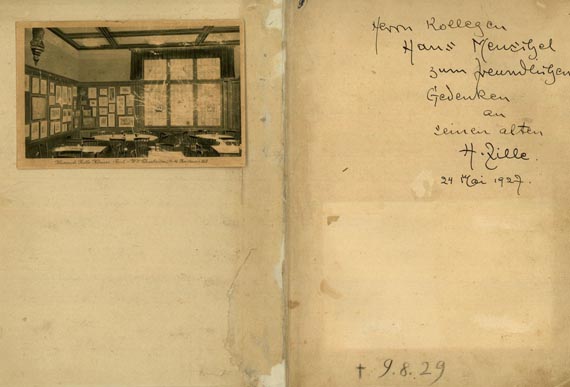 Herrn Kollegen
Hans
zum freundlichen
Gedenken
an
seinen alten
H. Zille.
24 Mai 1927.
† 9.8.29